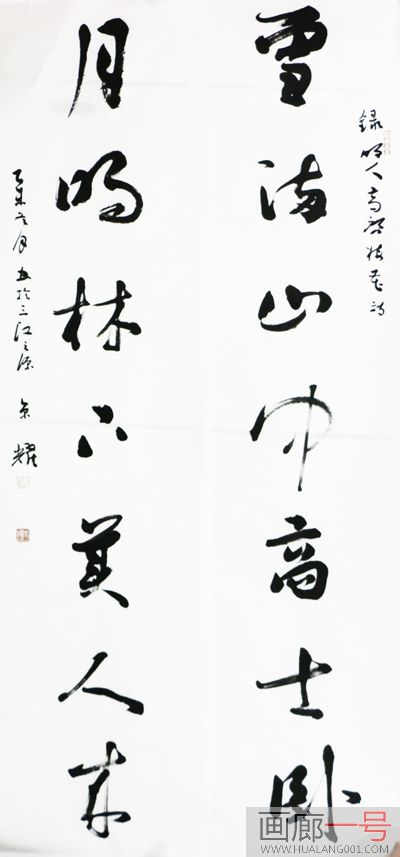 録明人高啟梅花詩
雪滿山中高士卧
月明林下美人來
乙未冬月書於三江之源
耀
画廊一号
WWW.HUALANG001.COM